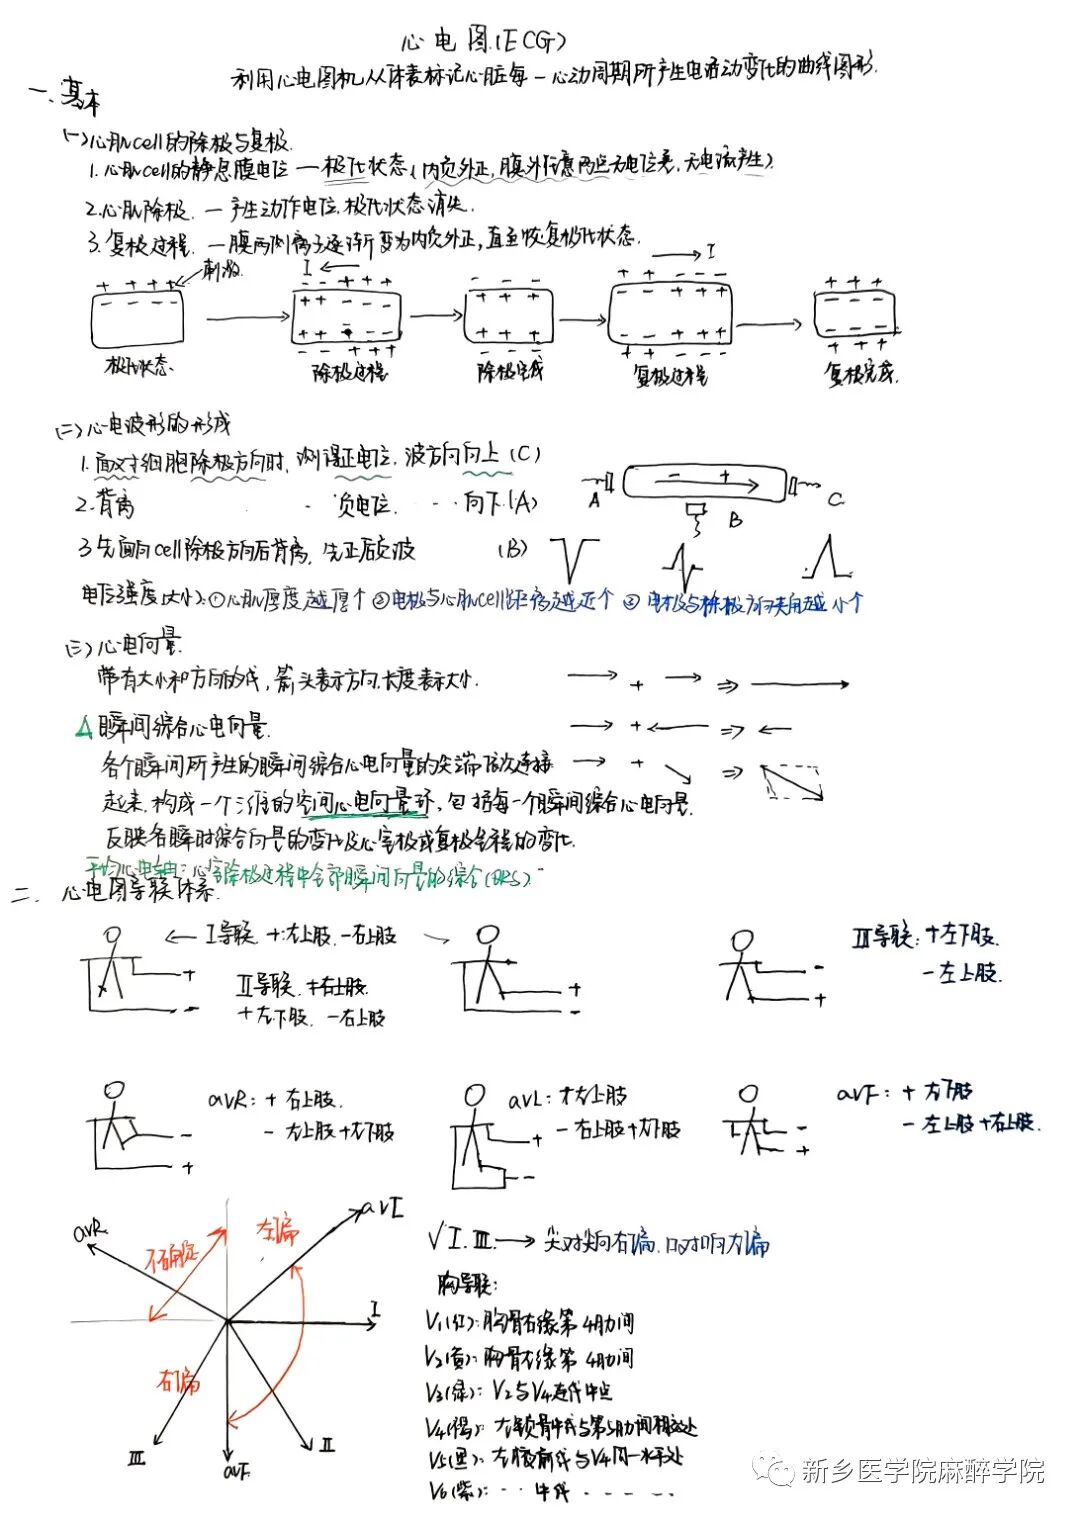 心电图(ECG)
利用心电图机从体表标记心脏每一心动周期所产生电活动变化的曲线图形.
一、基本
(一)心肌cell的除极与复极.
1.心肌cell的静息膜电位 — 极化状态(内负外正,膜外任意两点无电位差,无电流产生)
2.心肌除极. — 产生动作电位,极化状态消失.
3.复极过程. — 膜两侧离子逐渐变为内负外正,直至恢复极化状态.
刺激
I
I
极化状态.
除极过程
除极完成
复极过程
复极完成.
(二)心电波形的形成
1.面对细胞除极方向时,测得正电位,波方向向上(C)
2.背离 负电位. 向下(A)
3.先面向cell除极方向后背离,先正后负波 (B)
A
B
C
电位强度(大小):①心肌厚度越厚个 ②电极与心肌cell距离越近个 ③电极与除极方向夹角越小个
(三)心电向量.
带有大小和方向的线,箭头表示方向,长度表示大小.
△瞬间综合心电向量.
各个瞬间所产生的瞬间综合心电向量的尖端依次连接
起来,构成一个三维的空间心电向量环,包括每一个瞬间综合心电向量.
反映各瞬时综合向量的变化及心室极或复极全程的变化.
平均心电轴:心室除极过程中全部瞬间向量的综合(QRS).
二、心电图导联体系.
I导联.+:左上肢,-右上肢
II导联.
+左下肢,-右上肢
III导联:+左下肢.
-左上肢.
aVR:+右上肢.
-左上肢+左下肢
aVL:+左上肢
-右上肢+左下肢
aVF:+左下肢
-左上肢+右上肢.
aVR
aVL
不确定
左偏
I
右偏
III
aVF
II
√I.III.→尖对尖向右偏,口对口向左偏
胸导联:
V1(红):胸骨右缘第4肋间
V2(黄):胸骨左缘第4肋间
V3(绿):V2与V4连线中点
V4(褐):左锁骨中线与第5肋间相交处
V5(黑):左腋前线与V4同一水平处
V6(紫):··中线······.
新乡医学院麻醉学院